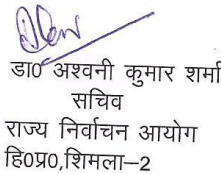 डा0 अश्वनी कुमार शर्मा
सचिव
राज्य निर्वाचन आयोग
हि0प्र0,शिमला–2